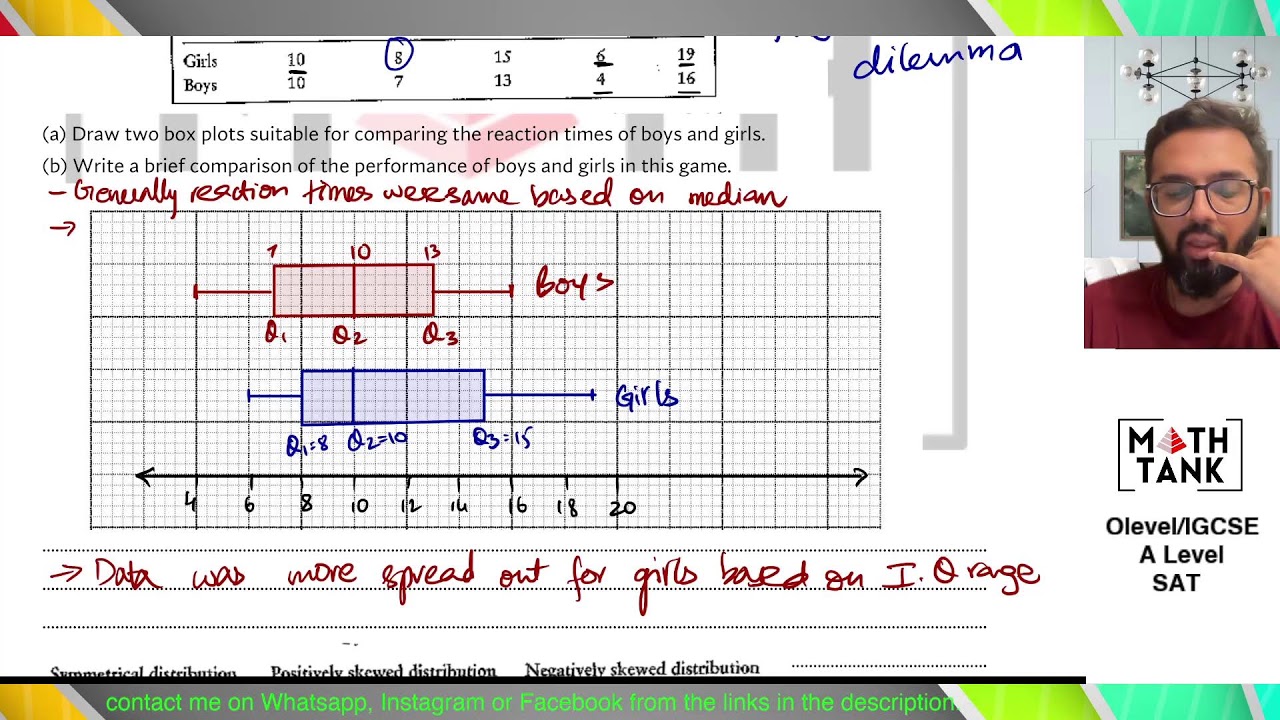 dilemma
Girls 10 8 15 6 19
Boys 10 7 13 4 16
(a) Draw two box plots suitable for comparing the reaction times of boys and girls.
(b) Write a brief comparison of the performance of boys and girls in this game.
- Generally reaction times were same based on median
→
7 10 13
Boys
Q1 Q2 Q3
Girls
Q1=8 Q2=10 Q3=15
4 6 8 10 12 14 16 18 20
→ Data was more spread out for girls based on I.Q range
Symmetrical distribution Positively skewed distribution Negatively skewed distribution
MATH
TANK
Olevel/IGCSE
A Level
SAT
contact me on Whatsapp, Instagram or Facebook from the links in the description.